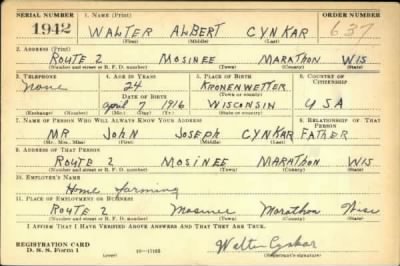 SERIAL NUMBER 1. NAME (Print) ORDER NUMBER
1942 WALTER ALBERT CYNKAR 637
(First) (Middle) (Last)
2. ADDRESS (Print)
ROUTE 2 MOSINEE MARATHON WIS
(Number and street or R. F. D. number) (Town) (County) (State)
3. TELEPHONE 4. AGE IN YEARS 5. PLACE OF BIRTH 6. COUNTRY OF CITIZENSHIP
None 24 KRONENWETTER
DATE OF BIRTH (Town or county)
April 7 1916 WISCONSIN USA
(Exchange) (Number) (Mo.) (Day) (Yr.) (State or country)
7. NAME OF PERSON WHO WILL ALWAYS KNOW YOUR ADDRESS 8. RELATIONSHIP OF THAT PERSON
MR JOHN JOSEPH CYNKAR FATHER
(Mr., Mrs., Miss) (First) (Middle) (Last)
9. ADDRESS OF THAT PERSON
ROUTE 2 MOSINEE MARATHON WIS
(Number and street or R. F. D. number) (Town) (County) (State)
10. EMPLOYER'S NAME
Home farming
11. PLACE OF EMPLOYMENT OR BUSINESS
ROUTE 2 Mosinee Marathon Wisc
(Number and street or R. F. D. number) (Town) (County) (State)
I AFFIRM THAT I HAVE VERIFIED ABOVE ANSWERS AND THAT THEY ARE TRUE.
REGISTRATION CARD
D. S. S. Form 1 (over) 16-17105 Walter Cynkar
(Registrant's signature)